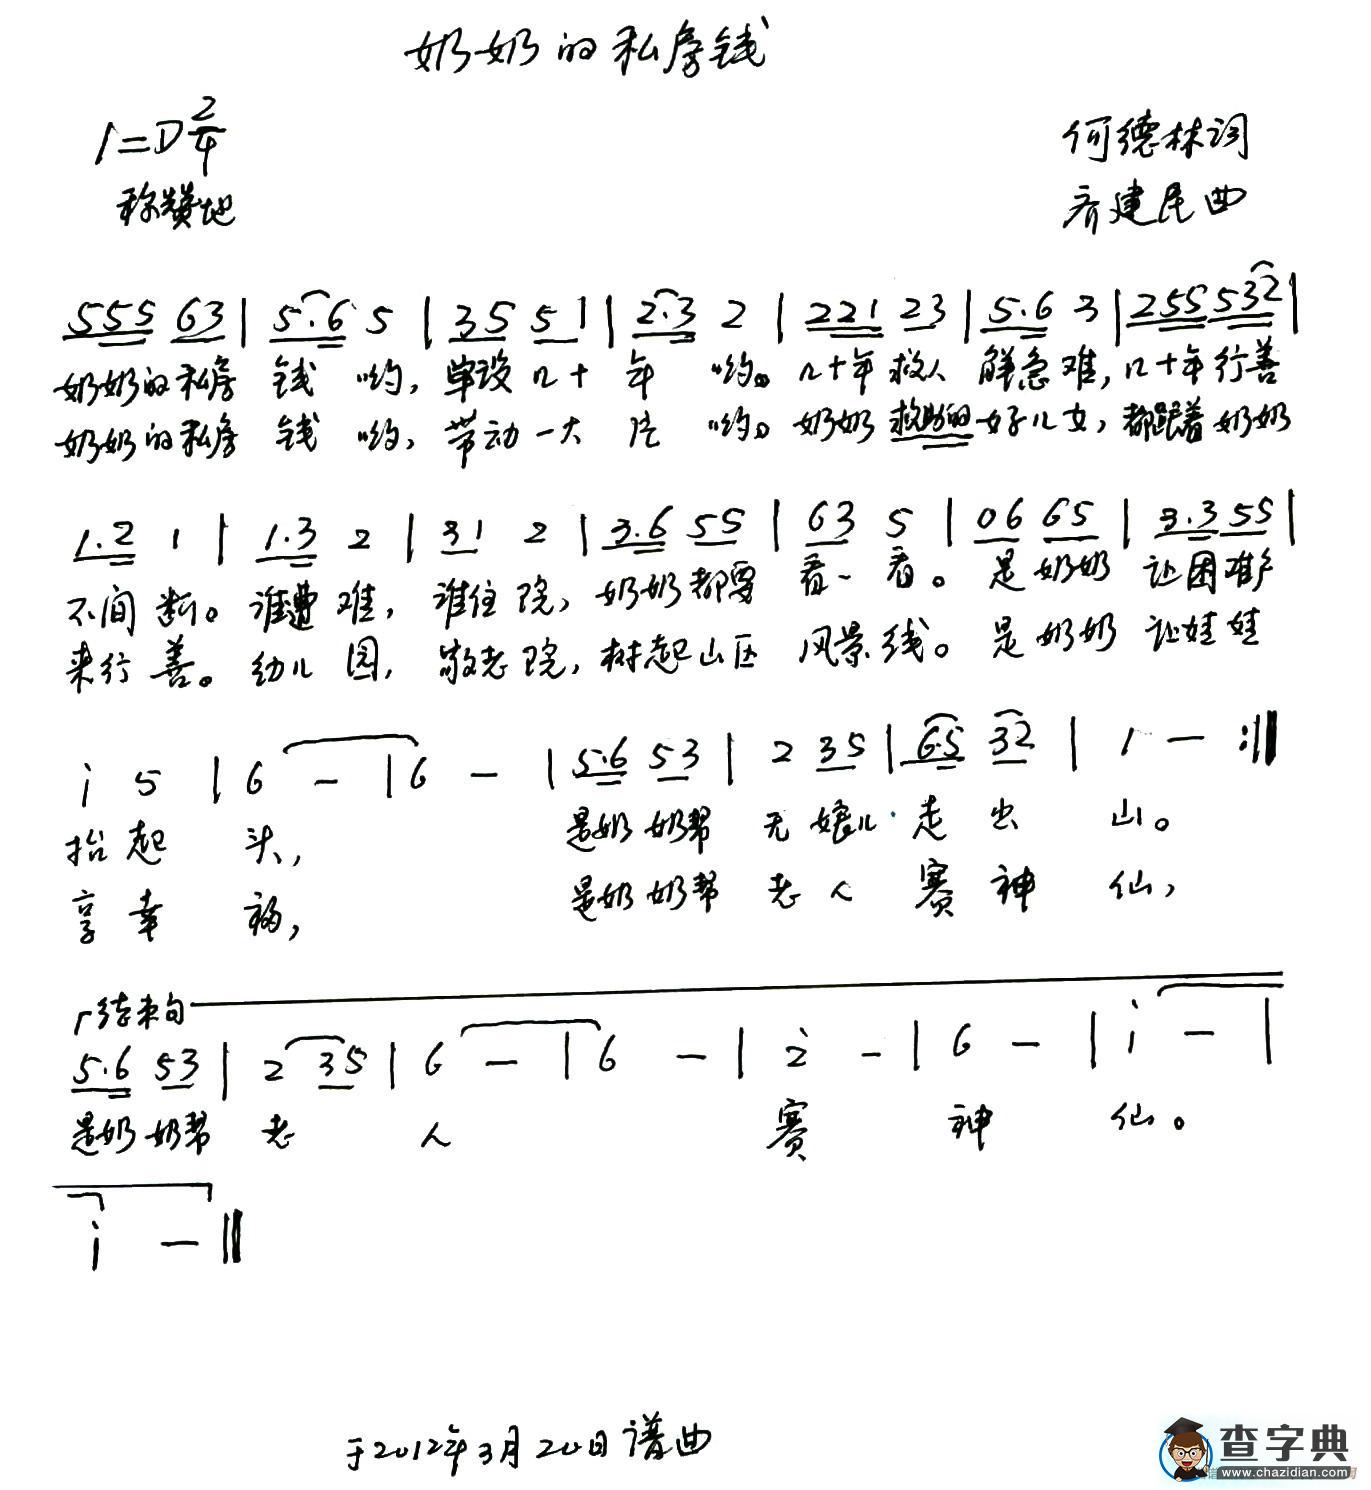 奶奶的私房钱
1=D 2/4
何德林词
称赞地
齐建昆曲
555 63 | 5.6 5 | 35 51 | 2.3 2 | 221 23 | 5.6 3 | 255 532 |
奶奶的私房 钱 哟, 单设几十 年 哟。几十年救人 解急难, 几十年行善
奶奶的私房 钱 哟, 带动一大 片 哟。奶奶救助的好儿女, 都跟着奶奶
1.2 1 | 1.3 2 | 31 2 | 3.6 55 | 63 5 | 06 65 | 3.3 55 |
不间断。谁遭难, 谁住院, 奶奶都要 看一看。是奶奶 让困难户
来行善。幼儿园, 敬老院, 树起山区 风景线。是奶奶 让娃娃
i 5 | 6 — | 6 — | 5.6 53 | 2 35 | 65 32 | 1 — :||
抬起 头, 是奶奶帮 无娘儿 走出 山。
享幸 福, 是奶奶帮 老人 赛神 仙,
结束句
5.6 53 | 2 35 | 6 — | 6 — | 2̇ — | 6 — | i — |
是奶奶帮 老 人 赛 神 仙。
i — ||
于2012年3月20日谱曲
查字典
www.chazidian.com